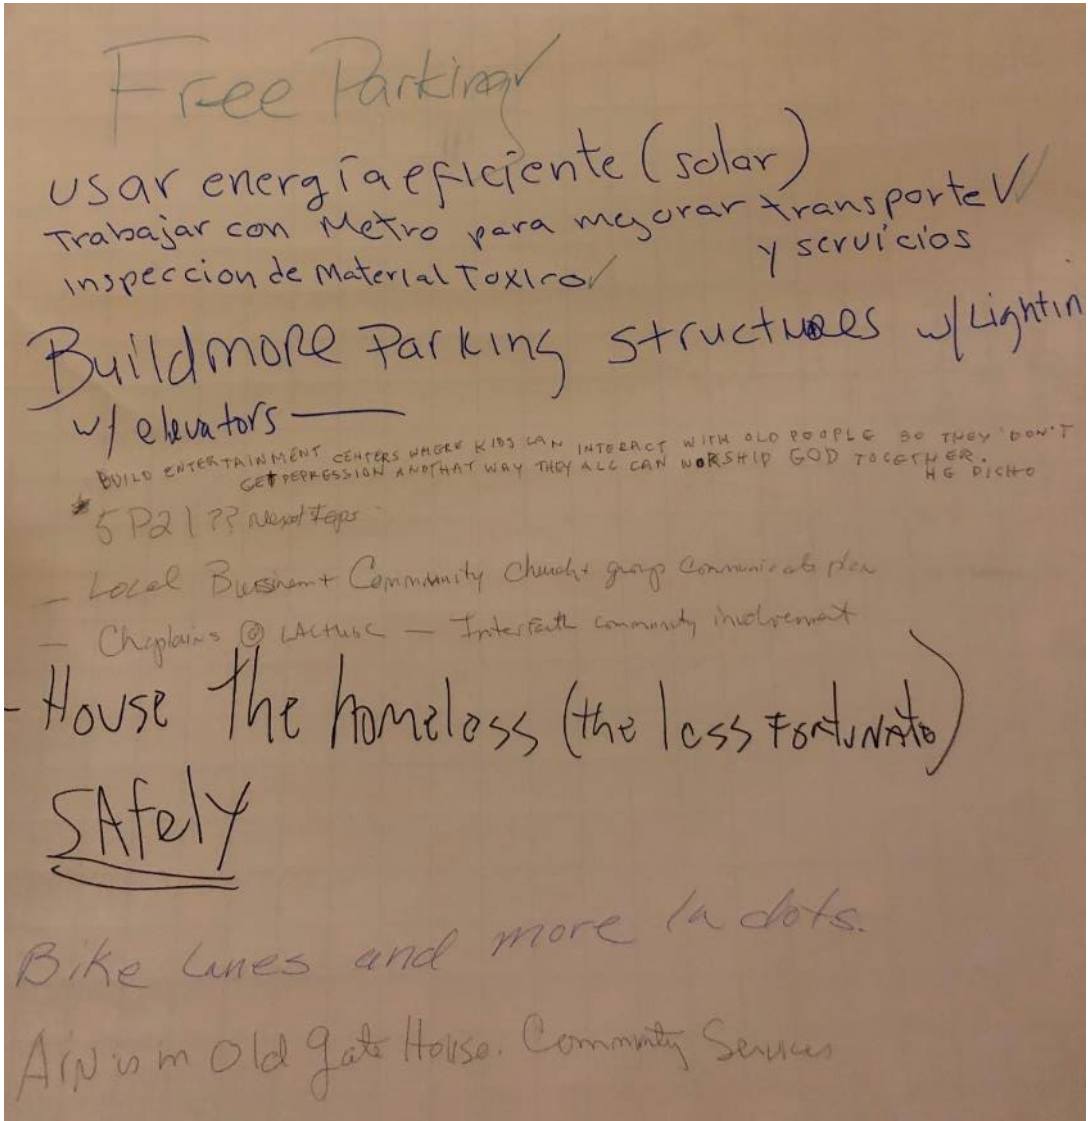 Free Parking ✓
usar energía eficiente (solar)
Trabajar con Metro para mejorar transporte ✓
y servicios
inspeccion de Material Toxico ✓
Build more Parking structures w/Lightin
w/ elevators —
BUILD ENTERTAINMENT CENTERS WHERE KIDS CAN INTERACT WITH OLD POOPLE SO THEY DON'T
GET DEPRESSION AND THAT WAY THEY ALL CAN WORSHIP GOD TOGETHER.
HE DICHO
* 5 P21 ?? Next Steps
— Local Community Church + group communicate plan
— Chaplains @ — Interfaith community involvement
- House The homeless (the less Fortunate)
SAfely
Bike Lanes and more la dots.
in Old Gate House. Community Services